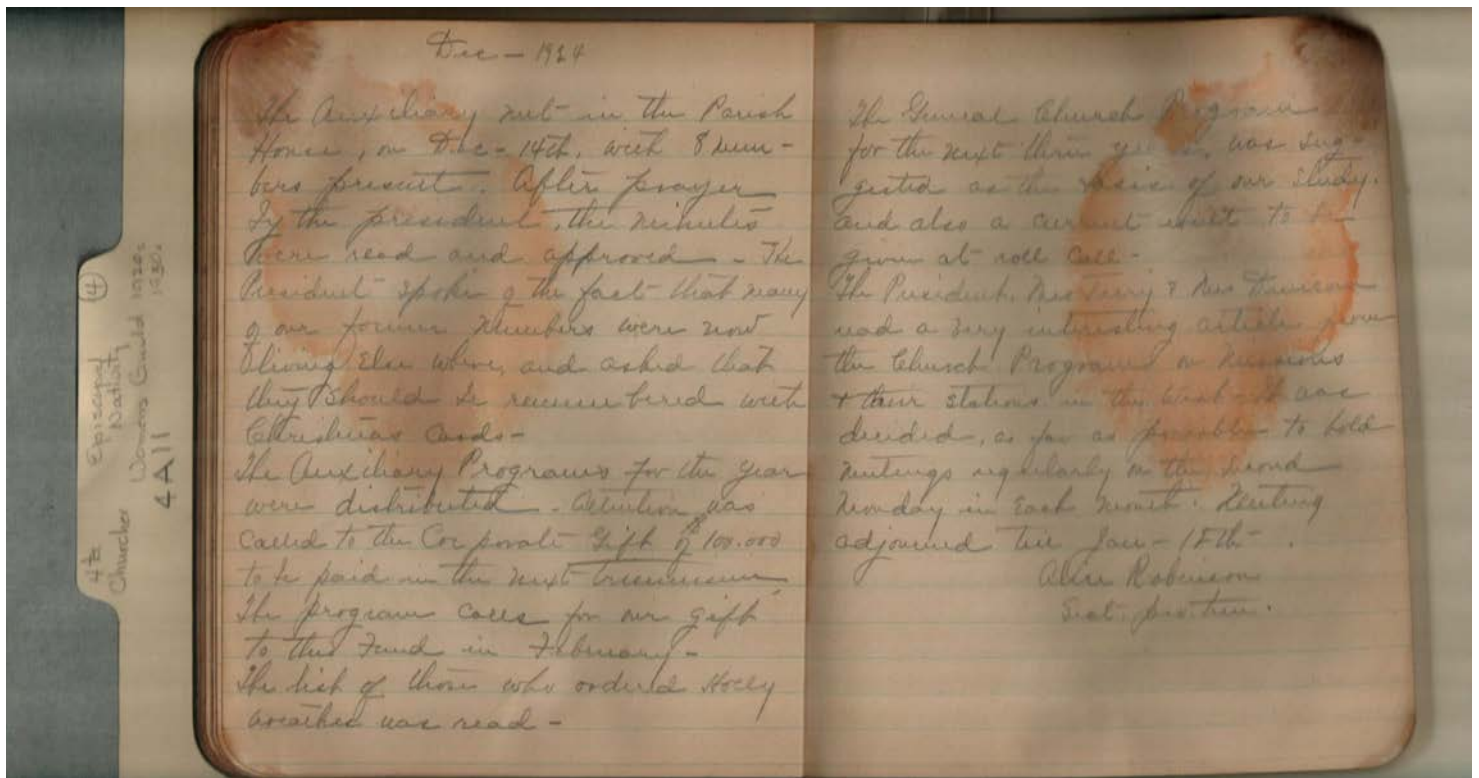 4a Episcopal
Churches Nativity
Womens Guild 1920s
1930s
4A11
4
Dec - 1924
The Auxiliary met in the Parish
House, on Dec - 14th, with 8 mem-
bers present. After prayer
by the president, the minutes
were read and approved - The
President spoke of the fact that many
of our former members were now
living Else where, and asked that
they should be remembered with
Christmas Cards -
The Auxiliary Programs for the year
were distributed. Attention was
called to the Corporate Gift of 100.000
to be paid in the next triennium,
The program calls for our gift
to this Fund in February -
The list of those who ordered Holly
wreathes was read -
The General Church Program
for the next three years, was sug-
gested as the basis of our study.
and also a current event to be
given at roll call -
The President, Mrs & Mrs
read a very interesting article from
the Church Program on Missions
& their stations in the West - It was
decided, as far as possible - to hold
meetings regularly on the second
Monday in Each Month. Meeting
adjourned till Jan - 18th - .
Alice Robinson
Sect. pro. tem.